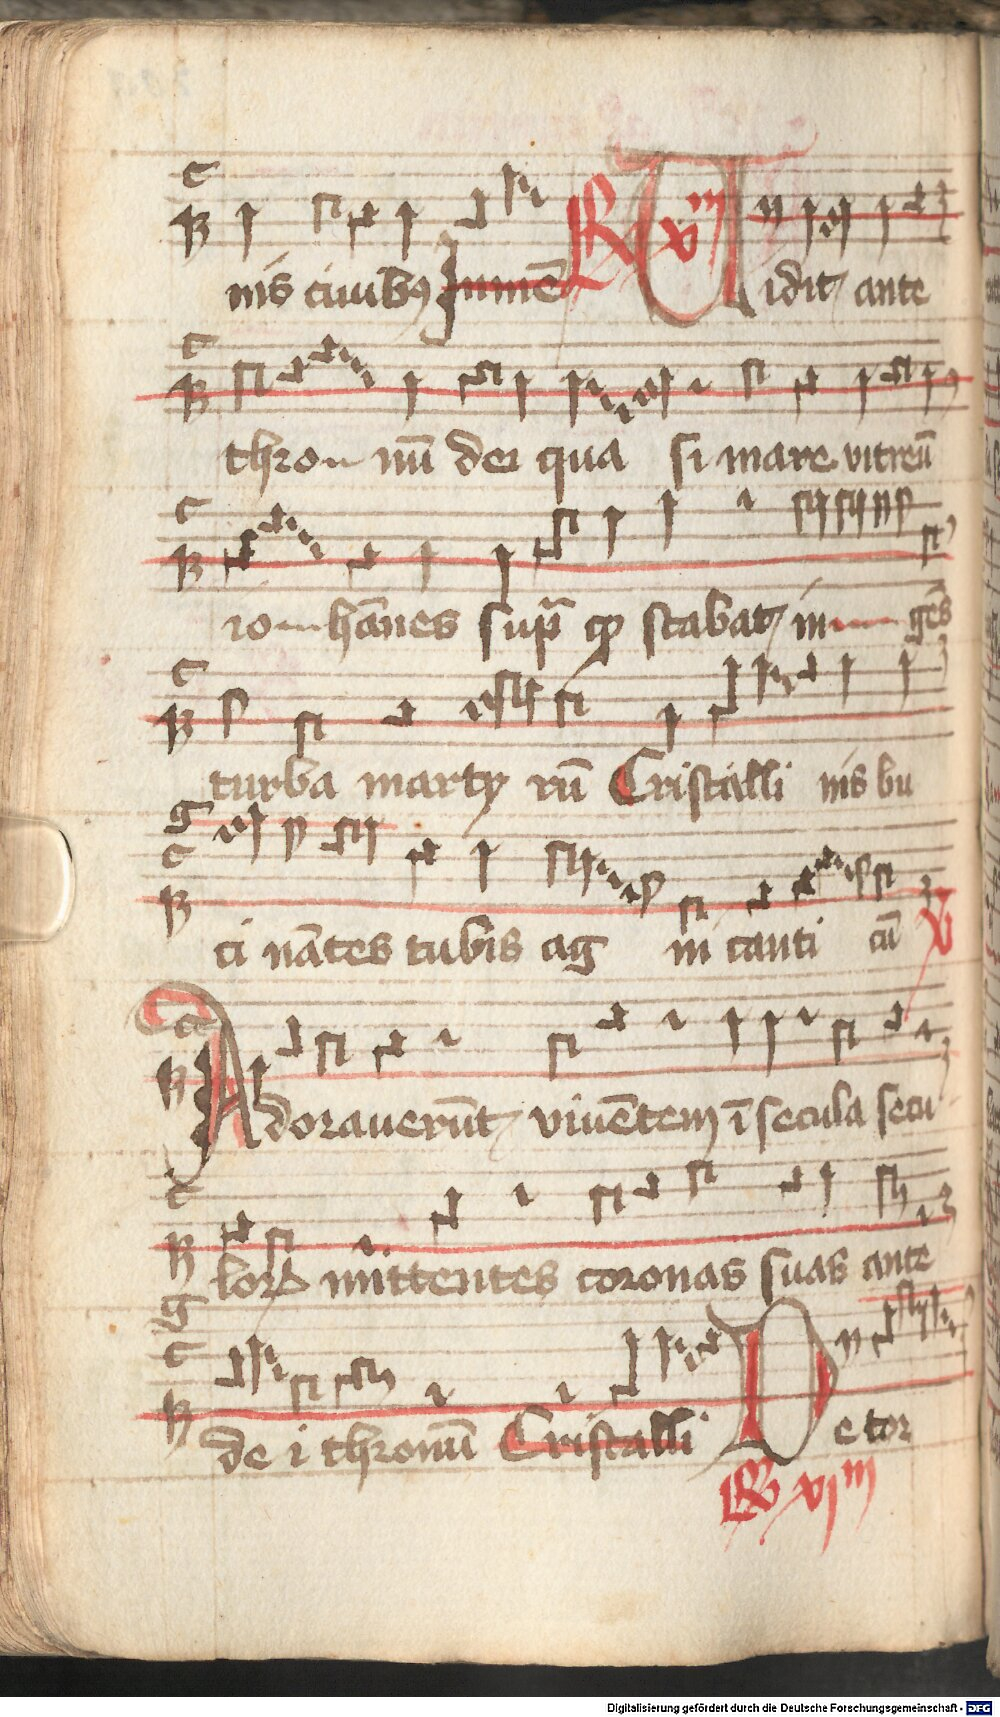 nis ciuibꝰ Inmē R̸ xᵐ Uidit ante
thro nū dei qua si mare vitreū
io hānes sup̄ qͥ stabat in gēs
turba marty rū Cristalli nis bu
ci nātes tubis ag ni canti cū V
Adorauerūt viuētem ī secula secu
loꝝ mittentes coronas suas ante
de i thronū Cristalli De tor
R̸ xiᵐ
Digitalisierung gefördert durch die Deutsche Forschungsgemeinschaft - DFG